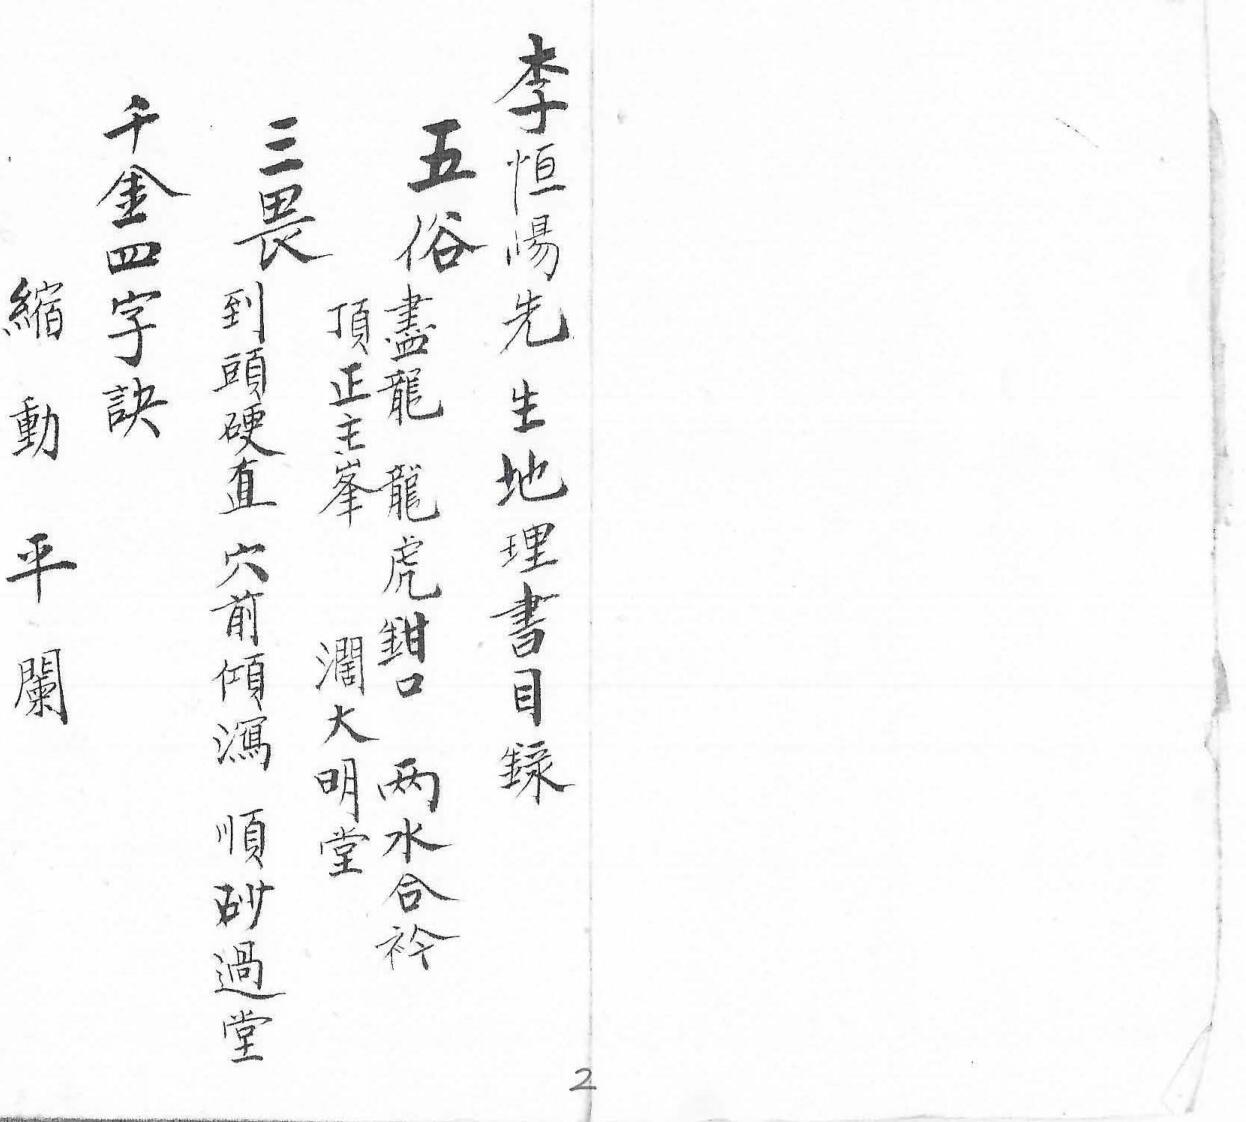 李恒陽先生地理書目録
五俗
盡龍 龍虎鉗口 两水合衿
頂正主峯 濶大明堂
三畏
到頭硬直 穴前傾瀉 順砂過堂
千金四字訣
縮 動 平 闌
2